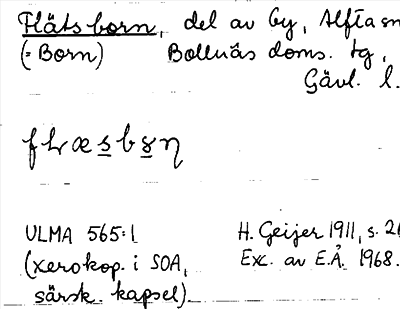 Fläts born, del av by, Alfta sn
(= Born) Bollnäs doms. tg,
Gävl. l.
ULMA 565:1 H. Geijer 1911, s. 21
(xerokop. i SOA, Exc. av E.Å. 1968.
särsk. kapsel)